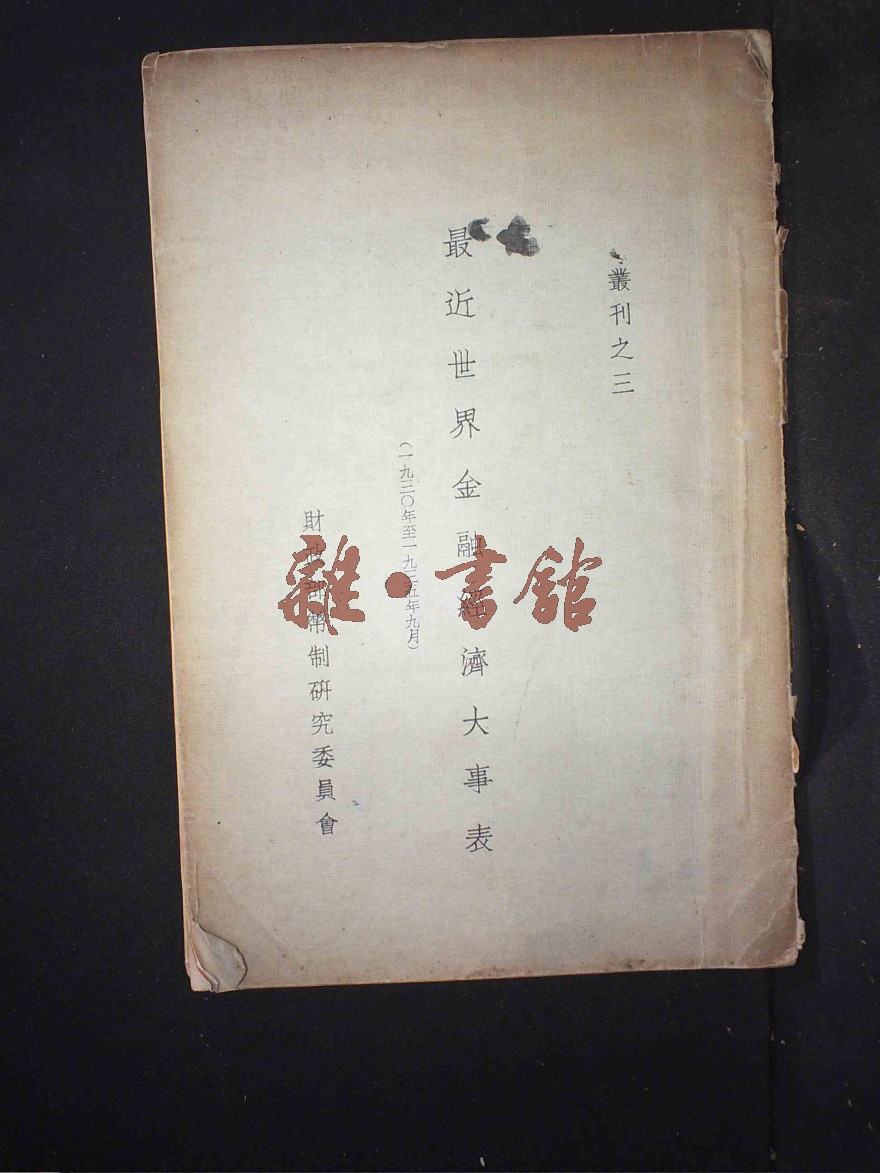 叢刊之三
最近世界金融經濟大事表
(一九三〇年至一九三五年九月)
財政部幣制研究委員會
雜·書舘